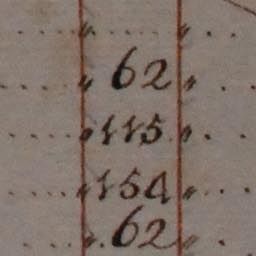 62
115
154
62